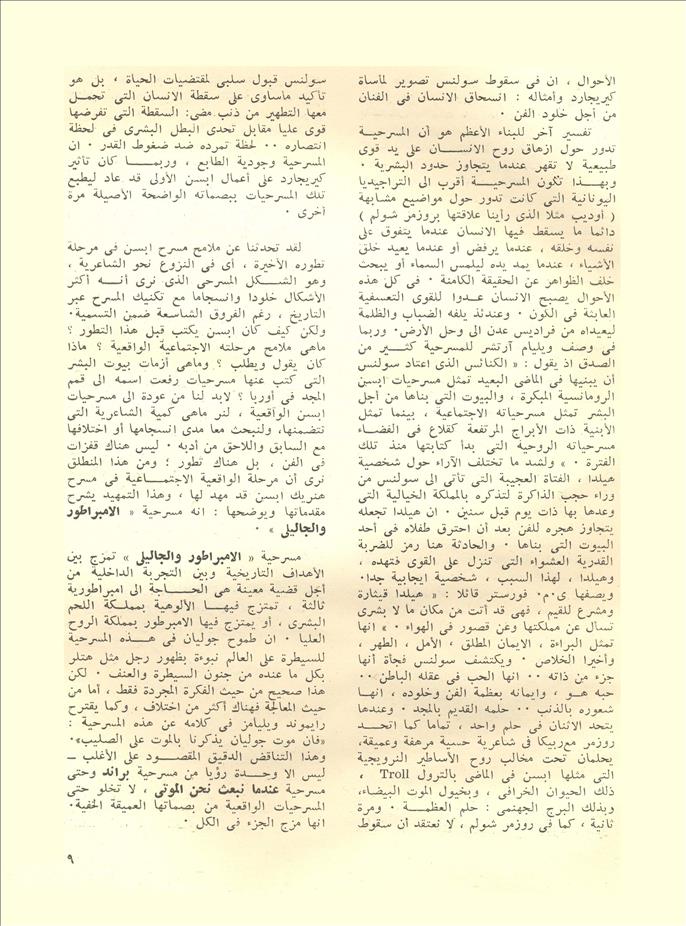 الأحوال ، ان فى سقوط سولنس تصوير لمأساة
كيريجارد وأمثاله : انسحاق الانسان فى الفنان
من أجل خلود الفن ·
تفسير آخر للبناء الأعظم هو أن المسرحية
تدور حول ازهاق روح الانسان على يد قوى
طبيعية لا تقهر عندما يتجاوز حدود البشرية ·
وبهذا تكون المسرحية أقرب الى التراجيديا
اليونانية التى كانت تدور حول مواضيع مشابهة
( أوديب مثلا الذى رأينا علاقتها بروزمر شولم )
دائما ما يسقط فيها الانسان عندما يتفوق على
نفسه وخلقه ، عندما يرفض أو عندما يعيد خلق
الأشياء ، عندما يمد يده ليلمس السماء أو يبحث
خلف الظواهر عن الحقيقة الكامنة · فى كل هذه
الأحوال يصبح الانسان عدوا للقوى التعسفية
العابثة فى الكون · وعندئذ يلفه الضباب والظلمة
ليعيداه من فراديس عدن الى وحل الأرض· وربما
فى وصف ويليام آرتشر للمسرحية كثير من
الصدق اذ يقول : « الكنائس الذى اعتاد سولنس
أن يبنيها فى الماضى البعيد تمثل مسرحيات ابسن
الرومانسية المبكرة ، والبيوت التى بناها من أجل
البشر تمثل مسرحياته الاجتماعية ، بينما تمثل
الأبنية ذات الأبراج المرتفعة كقلاع فى الفضاء
مسرحياته الروحية التى بدأ كتابتها منذ تلك
الفترة · » ولشد ما تختلف الآراء حول شخصية
هيلدا ، الفتاة العجيبة التى تأتى الى سولنس من
وراء حجب الذاكرة لتذكره بالمملكة الخيالية التى
وعدها بها ذات يوم قبل سنين · ان هيلدا تجعله
يتجاوز هجره للفن بعد أن احترق طفلاه فى أحد
البيوت التى بناها · والحادثة هنا رمز للضربة
القدرية العشواء التى تنزل على القوى فتهده ،
وهيلدا ، لهذا السبب ، شخصية ايجابية جدا·
ويصفها ى·م· فورستر قائلا : « هيلدا قيثارة
ومشرع للقيم ، فهى قد أتت من مكان ما لا بشرى
تسأل عن مملكتها وعن قصور فى الهواء · » انها
تمثل البراءة ، الايمان المطلق ، الأمل ، الطهر ،
وأخيرا الخلاص · ويكتشف سولنس فجأة أنها
جزء من ذاته ·· انها الحب فى عقله الباطن ··
حبه هو ، وايمانه بعظمة الفن وخلوده ، انها
شعوره بالذنب ·· حلمه القديم بالمجد · وعندها
يتحد الاثنان فى حلم واحد ، تماما كما اتحد
روزمر مع ربيكا فى شاعرية حسية مرهفة وعميقة،
يحلمان تحت مخالب روح الأساطير النرويجية
التى مثلها ابسن فى الماضى بالترول Troll ،
ذلك الحيوان الخرافى ، وبخيول الموت البيضاء،
وبذلك البرج الجهنمى : حلم العظمة · ومرة
ثانية ، كما فى روزمر شولم ، لا نعتقد أن سقوط
سولنس قبول سلبى لمقتضيات الحياة ، بل هو
تأكيد مأساوى على سقطة الانسان التى تحمل
معها التطهير من ذنب مضى: السقطة التى تفرضها
قوى عليا مقابل تحدى البطل البشرى فى لحظة
انتصاره ·· لحظة تمرده ضد ضغوط القدر · ان
المسرحية وجودية الطابع ، وربما كان تأثير
كيريجارد على أعمال ابسن الأولى قد عاد ليطبع
تلك المسرحيات ببصماته الواضحة الأصيلة مرة
أخرى ·
لقد تحدثنا عن ملامح مسرح ابسن فى مرحلة
تطوره الأخيرة ، أى فى النزوع نحو الشاعرية ،
وهو الشكل المسرحى الذى نرى أنه أكثر
الأشكال خلودا وانسجاما مع تكنيك المسرح عبر
التاريخ ، رغم الفروق الشاسعة ضمن التسمية·
ولكن كيف كان ابسن يكتب قبل هذا التطور ؟
ماهى ملامح مرحلته الاجتماعية الواقعية ؟ ماذا
كان يقول ويطلب ؟ وماهى أزمات بيوت البشر
التى كتب عنها مسرحيات رفعت اسمه الى قمم
المجد فى أوربا ؟ لابد لنا من عودة الى مسرحيات
ابسن الواقعية ، لنر ماهى كمية الشاعرية التى
تتضمنها، ولنبحث معا مدى انسجامها أو اختلافها
مع السابق واللاحق من أدبه · ليس هناك قفزات
فى الفن ، بل هناك تطور ؛ ومن هذا المنطلق
نرى أن مرحلة الواقعية الاجتماعية فى مسرح
هنريك ابسن قد مهد لها ، وهذا التمهيد يشرح
مقدماتها ويوضحها : انه مسرحية « الامبراطور
والجاليلى » ·
مسرحية « الامبراطور والجاليلى » تمزج بين
الأهداف التاريخية وبين التجربة الداخلية من
أجل قضية معينة هى الحاجة الى امبراطورية
ثالثة ، تمتزج فيها الألوهية بمملكة اللحم
البشرى ، أو يمتزج فيها الامبرطور بمملكة الروح
العليا · ان طموح جوليان فى هذه المسرحية
للسيطرة على العالم نبوءة بظهور رجل مثل هتلر
بكل ما عنده من جنون السيطرة والعنف · لكن
هذا صحيح من حيث الفكرة المجردة فقط ، أما من
حيث المعالجة فهناك أكثر من اختلاف ، وكما يقترح
رايموند ويليامز فى كلامه عن هذه المسرحية :
«فان موت جوليان يذكرنا بالموت على الصليب»·
وهذا التناقض الدقيق المقصود على الأغلب –
ليس الا وحدة رؤيا من مسرحية براند وحتى
مسرحية عندما نبعث نحن الموتى ، لا تخلو حتى
المسرحيات الواقعية من بصماتها العميقة الخفية·
انها مزج الجزء فى الكل ·
٩